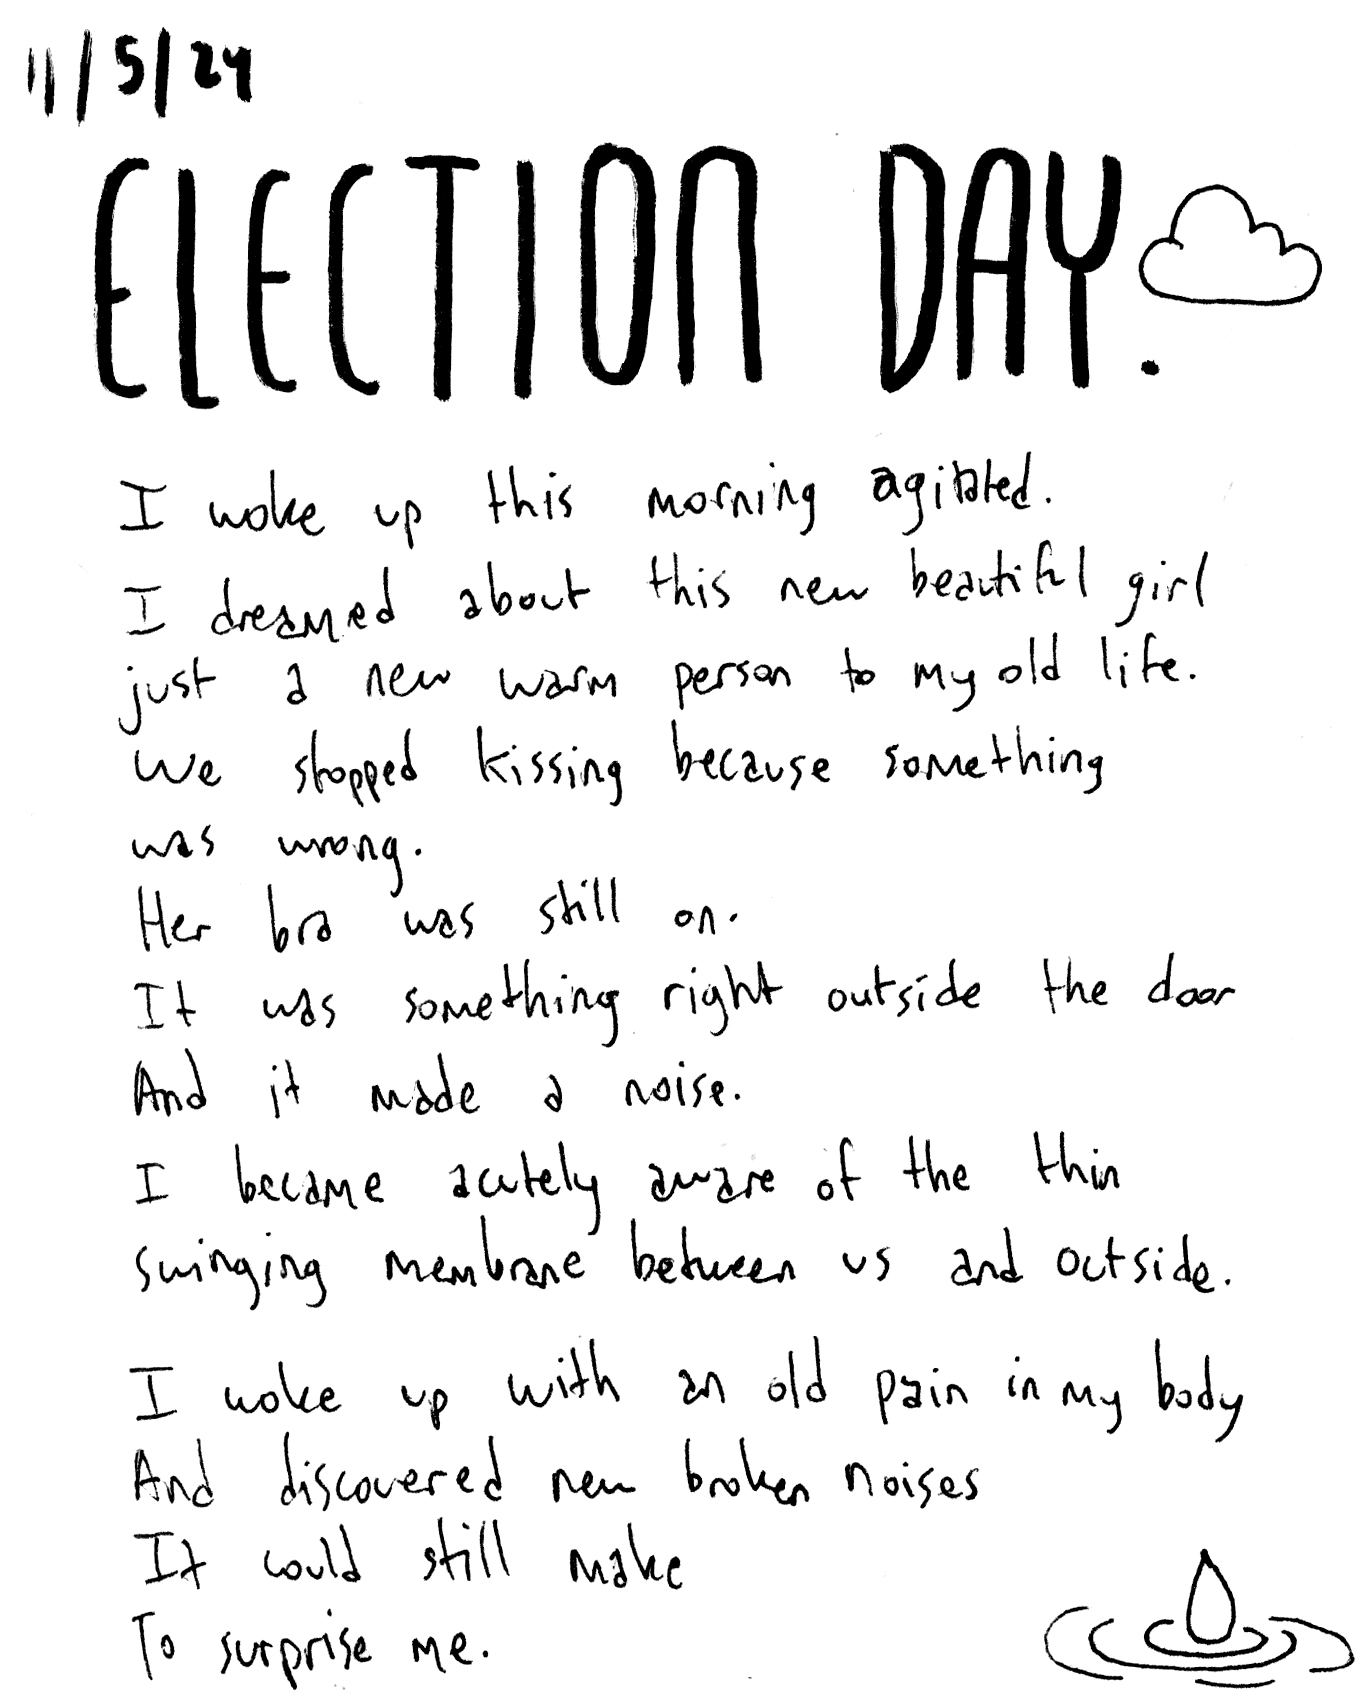 11/5/24
ELECTION DAY.
I woke up this morning agitated.
I dreamed about this new beautiful girl
just a new warm person to my old life.
We stopped kissing because something
was wrong.
Her bra was still on.
It was something right outside the door
And it made a noise.
I became acutely aware of the thin
swinging membrane between us and outside.
I woke up with an old pain in my body
And discovered new broken noises
It could still make
To surprise me.